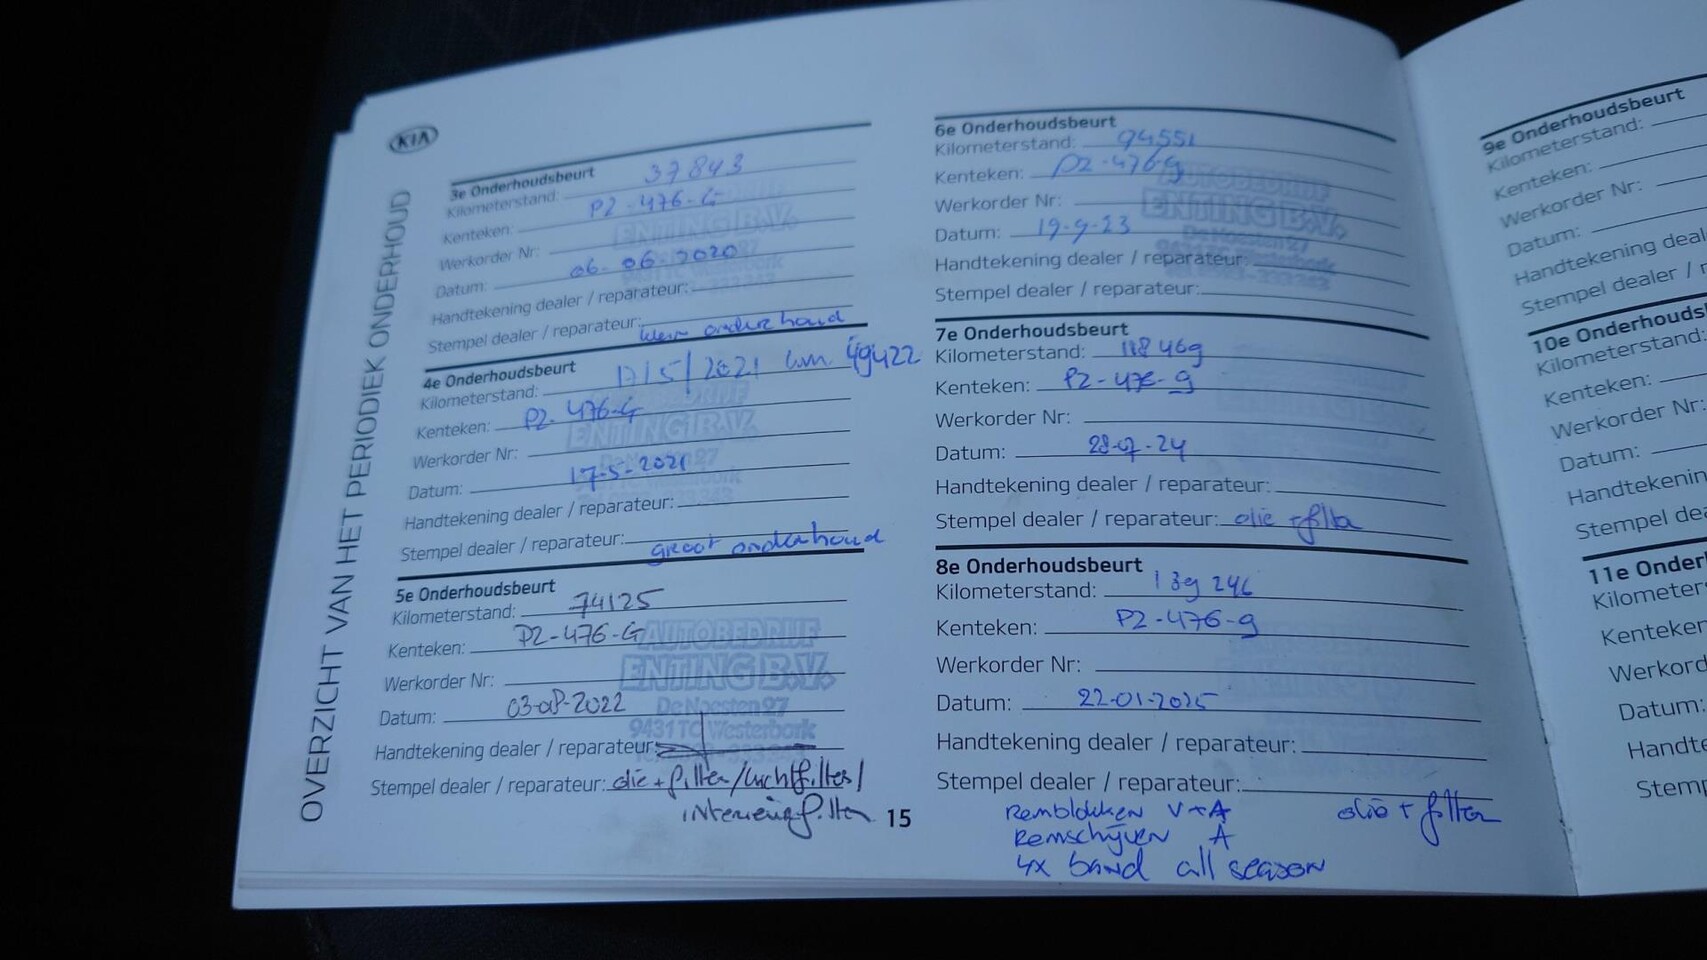 KIA
OVERZICHT VAN HET PERIODIEK ONDERHOUD
3e Onderhoudsbeurt
Kilometerstand: 37843
Kenteken: P2-476-G
Werkorder Nr:
Datum: 06-06-2020
Handtekening dealer / reparateur:
Stempel dealer / reparateur: klein onderhoud
ENTING B.V.
4e Onderhoudsbeurt
Kilometerstand: 17/5/2021 km 49422
Kenteken: P2-476-G
Werkorder Nr:
Datum: 17-5-2021
Handtekening dealer / reparateur:
Stempel dealer / reparateur: groot onderhoud
ENTING B.V.
5e Onderhoudsbeurt
Kilometerstand: 74125
Kenteken: P2-476-G
Werkorder Nr:
Datum: 03-08-2022
Handtekening dealer / reparateur:
Stempel dealer / reparateur: olie + filter/luchtfilter/
interieurfilter
AUTOBEDRIJF
ENTING B.V.
De Noesten 27
9431 TC Westerbork
15
6e Onderhoudsbeurt
Kilometerstand: 94551
Kenteken: P2-476-g
Werkorder Nr:
Datum: 19-9-23
Handtekening dealer / reparateur:
Stempel dealer / reparateur:
AUTOBEDRIJF
ENTING B.V.
De Noesten 27
7e Onderhoudsbeurt
Kilometerstand: 118469
Kenteken: P2-476-g
Werkorder Nr:
Datum: 28-07-24
Handtekening dealer / reparateur:
Stempel dealer / reparateur: olie + filter
8e Onderhoudsbeurt
Kilometerstand: 139246
Kenteken: P2-476-g
Werkorder Nr:
Datum: 22-01-2025
Handtekening dealer / reparateur:
Stempel dealer / reparateur:
Remblokken V+A olie + filter
Remschijven A
4x band all season
9e Onderhoudsbeurt
Kilometerstand:
Kenteken:
Werkorder Nr:
Datum:
Handtekening deal
Stempel dealer / r
10e Onderhouds
Kilometerstand:
Kenteken:
Werkorder Nr:
Datum:
Handtekenin
Stempel dea
11e Onder
Kilometer
Kenteken
Werkord
Datum:
Handte
Stemp